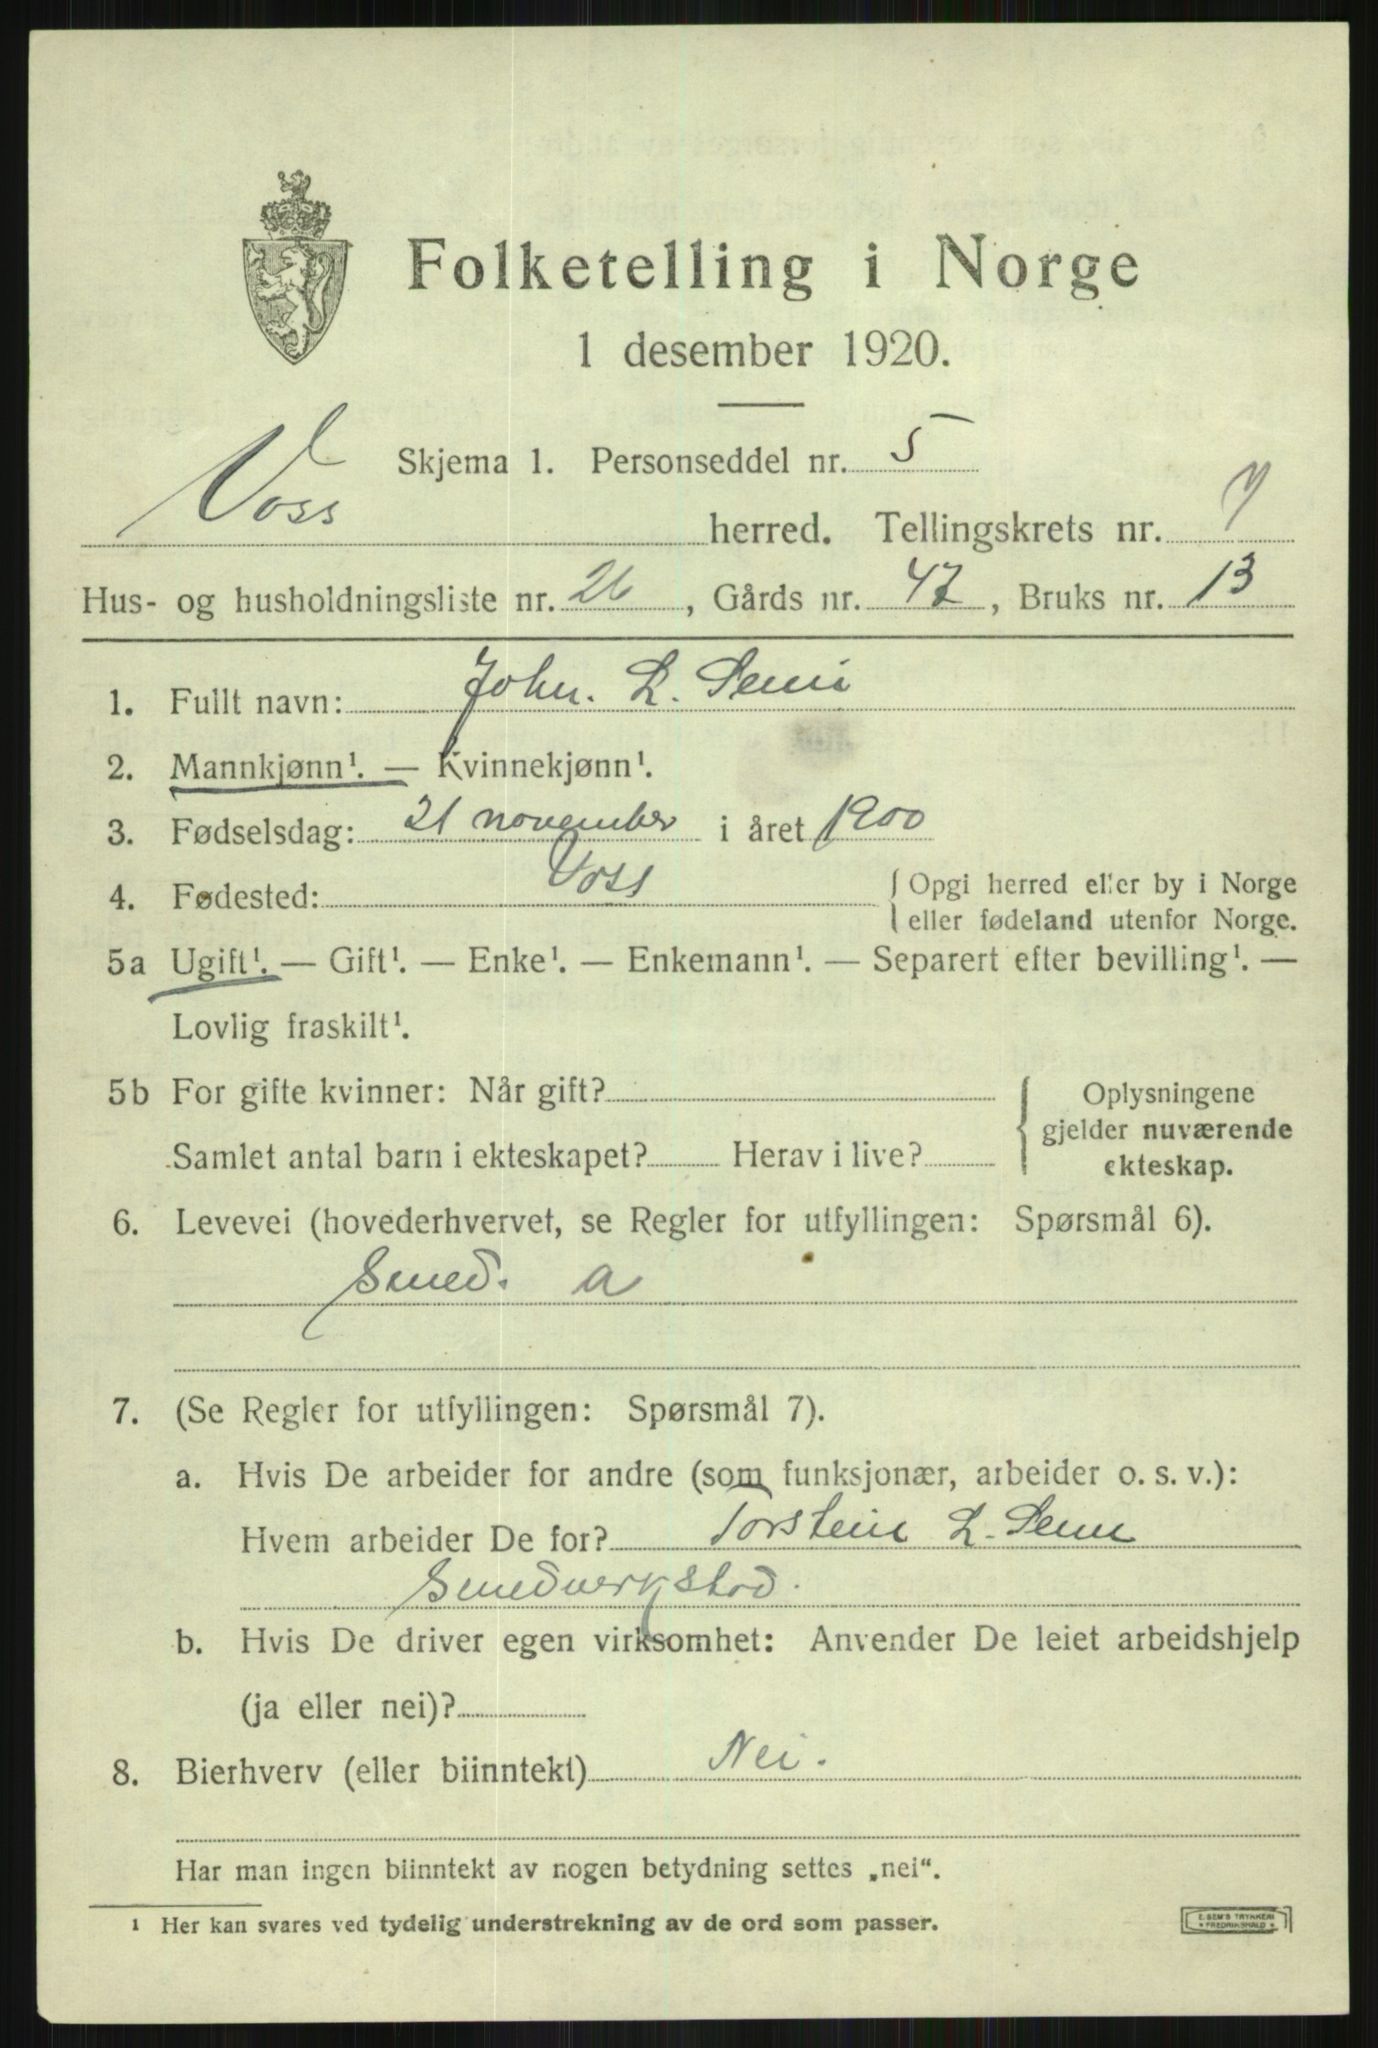 Folketelling i Norge
1 desember 1920.
Skjema 1. Personseddel nr. 5
Voss herred. Tellingskrets nr. 7
Hus- og husholdningsliste nr. 26, Gårds nr. 47, Bruks nr. 13
1. Fullt navn: John. L.
2. Mannkjønn¹. — Kvinnekjønn¹.
3. Fødselsdag: 21 november i året 1900
4. Fødested: Voss { Opgi herred eller by i Norge
eller fødeland utenfor Norge.
5a Ugift¹. — Gift¹. — Enke¹. — Enkemann¹. — Separert efter bevilling¹. —
Lovlig fraskilt¹.
5b For gifte kvinner: Når gift? { Oplysningene
gjelder nuværende
Samlet antal barn i ekteskapet? Herav i live?
ekteskap.
6. Levevei (hovederhvervet, se Regler for utfyllingen: Spørsmål 6).
Smed. a
7. (Se Regler for utfyllingen: Spørsmål 7).
a. Hvis De arbeider for andre (som funksjonær, arbeider o. s. v.):
Hvem arbeider De for? Torstein L.
Smedverkstad.
b. Hvis De driver egen virksomhet: Anvender De leiet arbeidshjelp
(ja eller nei)?
8. Bierhverv (eller biinntekt) Nei.
Har man ingen biinntekt av nogen betydning settes „nei“.
¹ Her kan svares ved tydelig understrekning av de ord som passer.
E. SEM'S TRYKKERI
FREDRIKSHALD